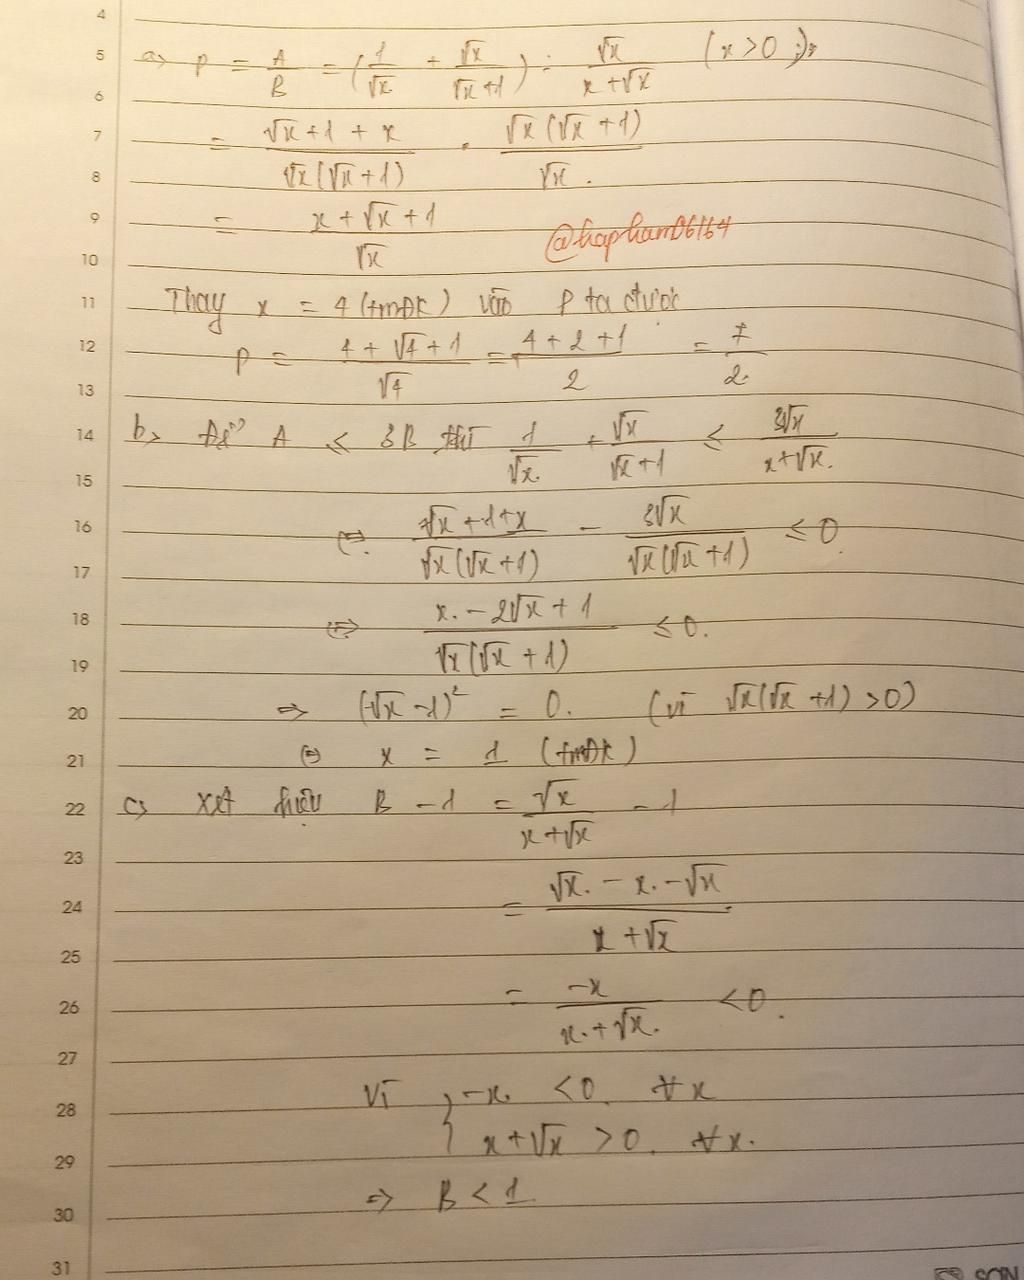 4
5 a, P = A/B = (1/√x + √x/(√x+1)) : √x/(x+√x) (x>0)
6
7 = (√x+1+x)/(√x(√x+1)) . √x(√x+1)/√x.
8
9 = (x+√x+1)/√x
@hapham06164
10
11 Thay x = 4 (tmđk) vào P ta được
12 P = (4+√4+1)/√4 = (4+2+1)/2 = 7/2.
13
14 b, Để A ≤ 3B thì 1/√x. + √x/(√x+1) ≤ 3√x/(x+√x.)
15
16 (=) (√x+1+x)/(√x(√x+1)) - 3√x/(√x(√x+1)) ≤ 0.
17
18 (=) (x.-2√x+1)/(√x(√x+1)) ≤ 0.
19
20 => (√x-1)² = 0. (vì √x(√x+1) > 0)
21 (=) x = 1 (tmđk)
22 c, Xét hiệu B - 1 = √x/(x+√x) - 1
23
24 = (√x.-x.-√x)/(x+√x)
25
26 = -x/(x.+√x.) < 0.
27
28 Vì { -x. < 0. ∀x
29 x+√x > 0. ∀x.
30 => B < 1.
31